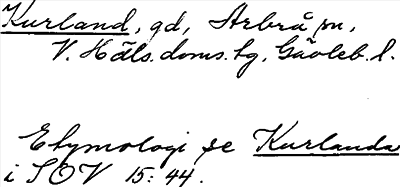 Kurland, gd, Arbrå sn,
V. Häls. doms. hg, Gävleb. l.
Etymologi se Kurlanda
i SOV 15: 44.